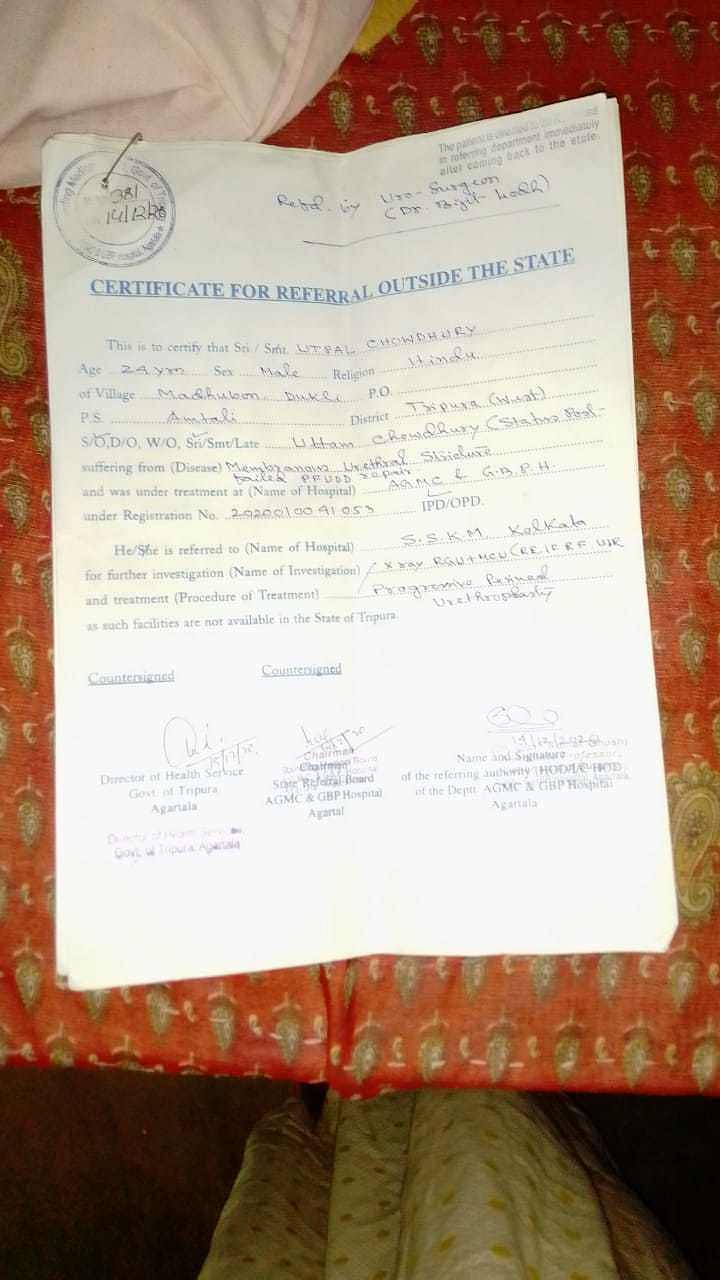 The patient is directed to
in referring department immediately
after coming back to the state.
Govt. of Tripura
381
14/12/20
AGMC & GBP Hospital, Agartala
Refd. by Uro-Surgeon
(Dr. Bijit Lodh)
CERTIFICATE FOR REFERRAL OUTSIDE THE STATE
This is to certify that Sri / Smt. UTPAL CHOWDHURY
Age 24 yrs Sex Male Religion Hindu
of Village Madhubon Dukli P.O.
P.S. Amtali District Tripura (West)
S/O,D/O, W/O, Sri/Smt/Late Uttam Chowdhury (Status Post-
suffering from (Disease) Membranous Urethral Stricture
failed PFUDD repair
and was under treatment at (Name of Hospital) AGMC & G.B.P.H.
under Registration No. 2020010091053 IPD/OPD.
He/She is referred to (Name of Hospital) S.S.K.M. Kolkata
for further investigation (Name of Investigation) X ray RGU + MCU
and treatment (Procedure of Treatment) Progressive Perineal
Urethroplasty
as such facilities are not available in the State of Tripura.
Countersigned Countersigned
15/12/20.
14/12/2020
Director of Health Service
Govt. of Tripura
Agartala
Chairman
Chairman
State Referral Board
AGMC & GBP Hospital
Agartal
Name and Signature
of the referring authority HOD/I/C HOD
of the Deptt. AGMC & GBP Hospital
Agartala
Director of Health Services
Govt. of Tripura, Agartala